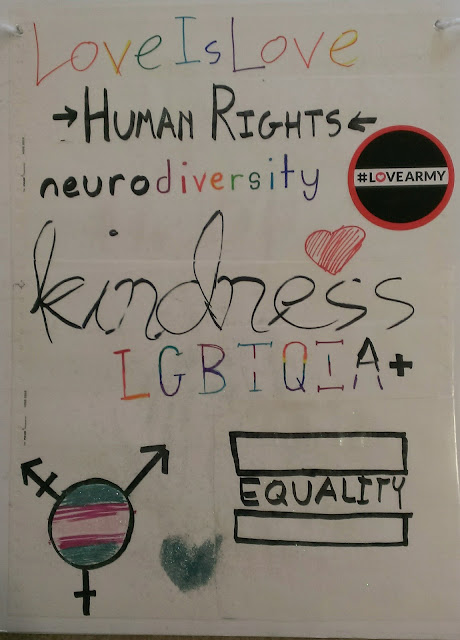 LoveIsLove
→HUMAN RIGHTS←
neurodiversity
#LOVEARMY
kindness
LGBTQIA+
EQUALITY